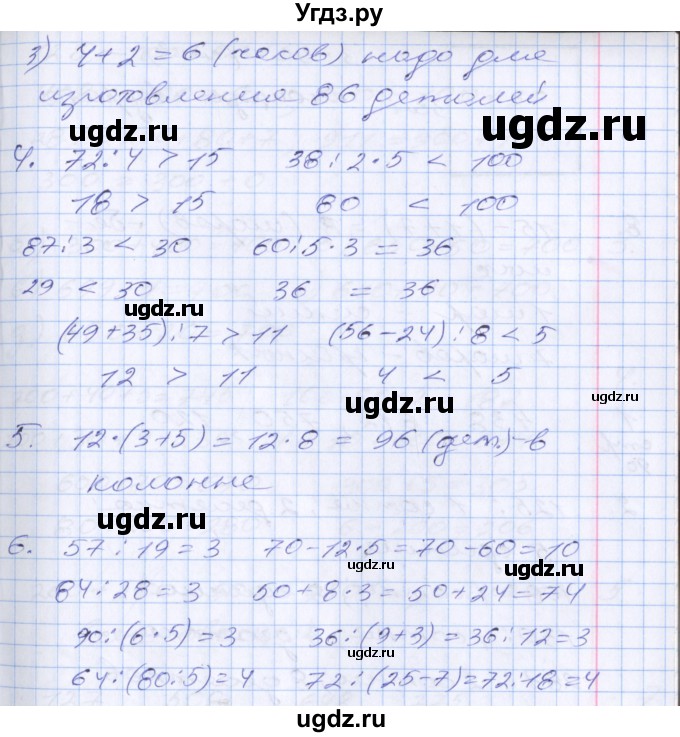 Угдз.ру
3) 4+2=6 (часов) надо для
изготовления 86 деталей
ugdz.ru
ugdz.ru
4. 72:4 > 15 38:2·5 < 100
ugdz.ru
18 > 15 60 < 100
87:3 < 30 60:5·3 = 36
29 < 30 36 = 36
ugdz.ru
(49+35):7 > 11 (56-24):8 < 5
ugdz.ru
12 > 11 4 < 5
ugdz.ru
ugdz.ru
5. 12·(3+5) = 12·8 = 96 (дет.)-в
колонне
ugdz.ru
6. 57:19=3 70-12·5=70-60=10
ugdz.ru
ugdz.ru
84:28=3 50+8·3=50+24=74
90:(6·5)=3 36:(9+3)=36:12=3
ugdz.ru
64:(80:5)=4 72:(25-7)=72:18=4
ugdz.ru
ugdz.ru